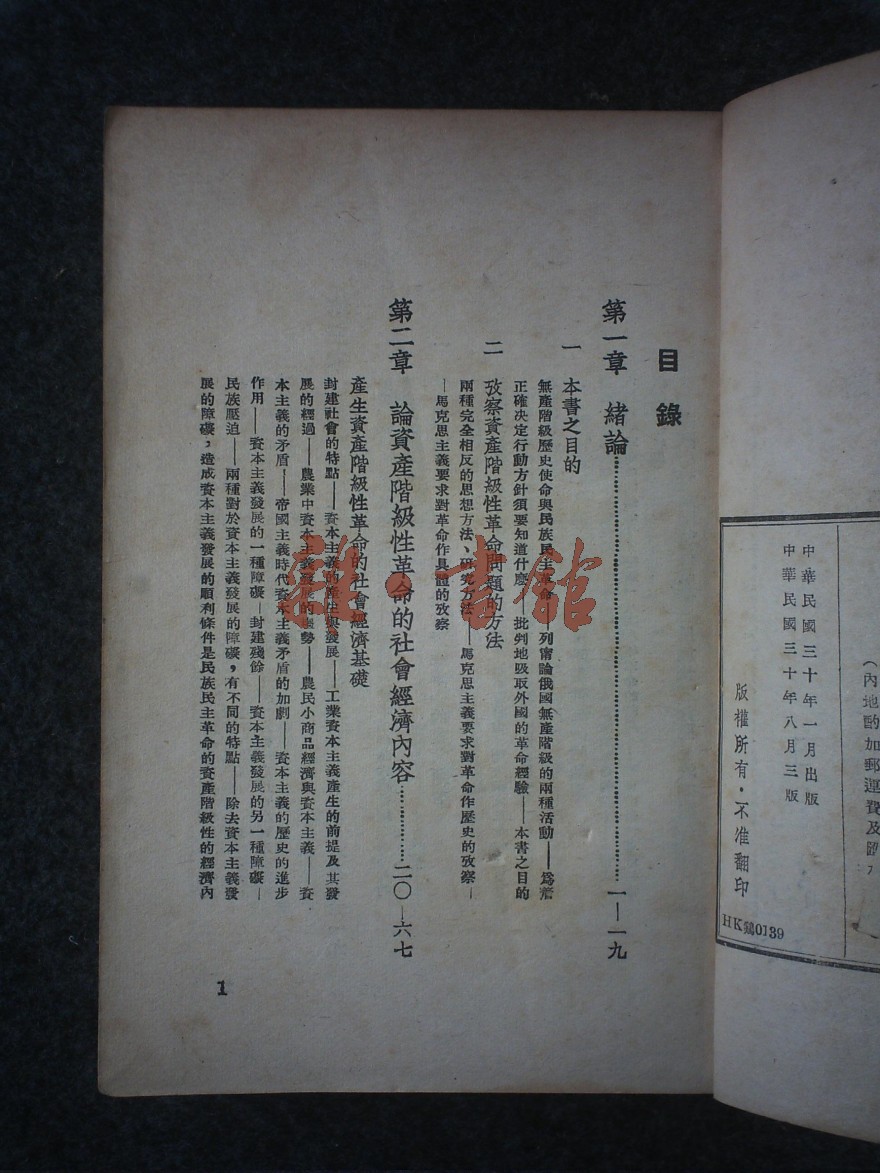 （內地酌加郵運費及
中華民國三十年一月出版
中華民國三十年八月三版
版權所有・不准翻印
HK鷄0139
目錄
第一章 緒論……一—一九
一 本書之目的
無產階級歷史使命與民族民主革命——列甯論俄國無產階級的兩種活動——爲着
正確決定行動方針須要知道什麽——批判地吸取外國的革命經驗——本書之目的
二 攷察資產階級性革命問題的方法
兩種完全相反的思想方法、研究方法——馬克思主義要求對革命作歷史的攷察—
—馬克思主義要求對革命作具體的攷察
第二章 論資產階級性革命的社會經濟內容……二〇—六七
產生資產階級性革命的社會經濟基礎
封建社會的特點——資本主義的產生與發展——工業資本主義產生的前提及其發
展的經過——農業中資本主義發展的趨勢——農民小商品經濟與資本主義——資
本主義的矛盾——帝國主義時代資本主義矛盾的加劇——資本主義的歷史的進步
作用——資本主義發展的一種障礙—封建殘餘——資本主義發展的另一種障礙—
民族壓迫——兩種對於資本主義發展的障礙，有不同的特點——除去資本主義發
展的障礙，造成資本主義發展的順利條件是民族民主革命的資產階級性的經濟內
1
雜・書館